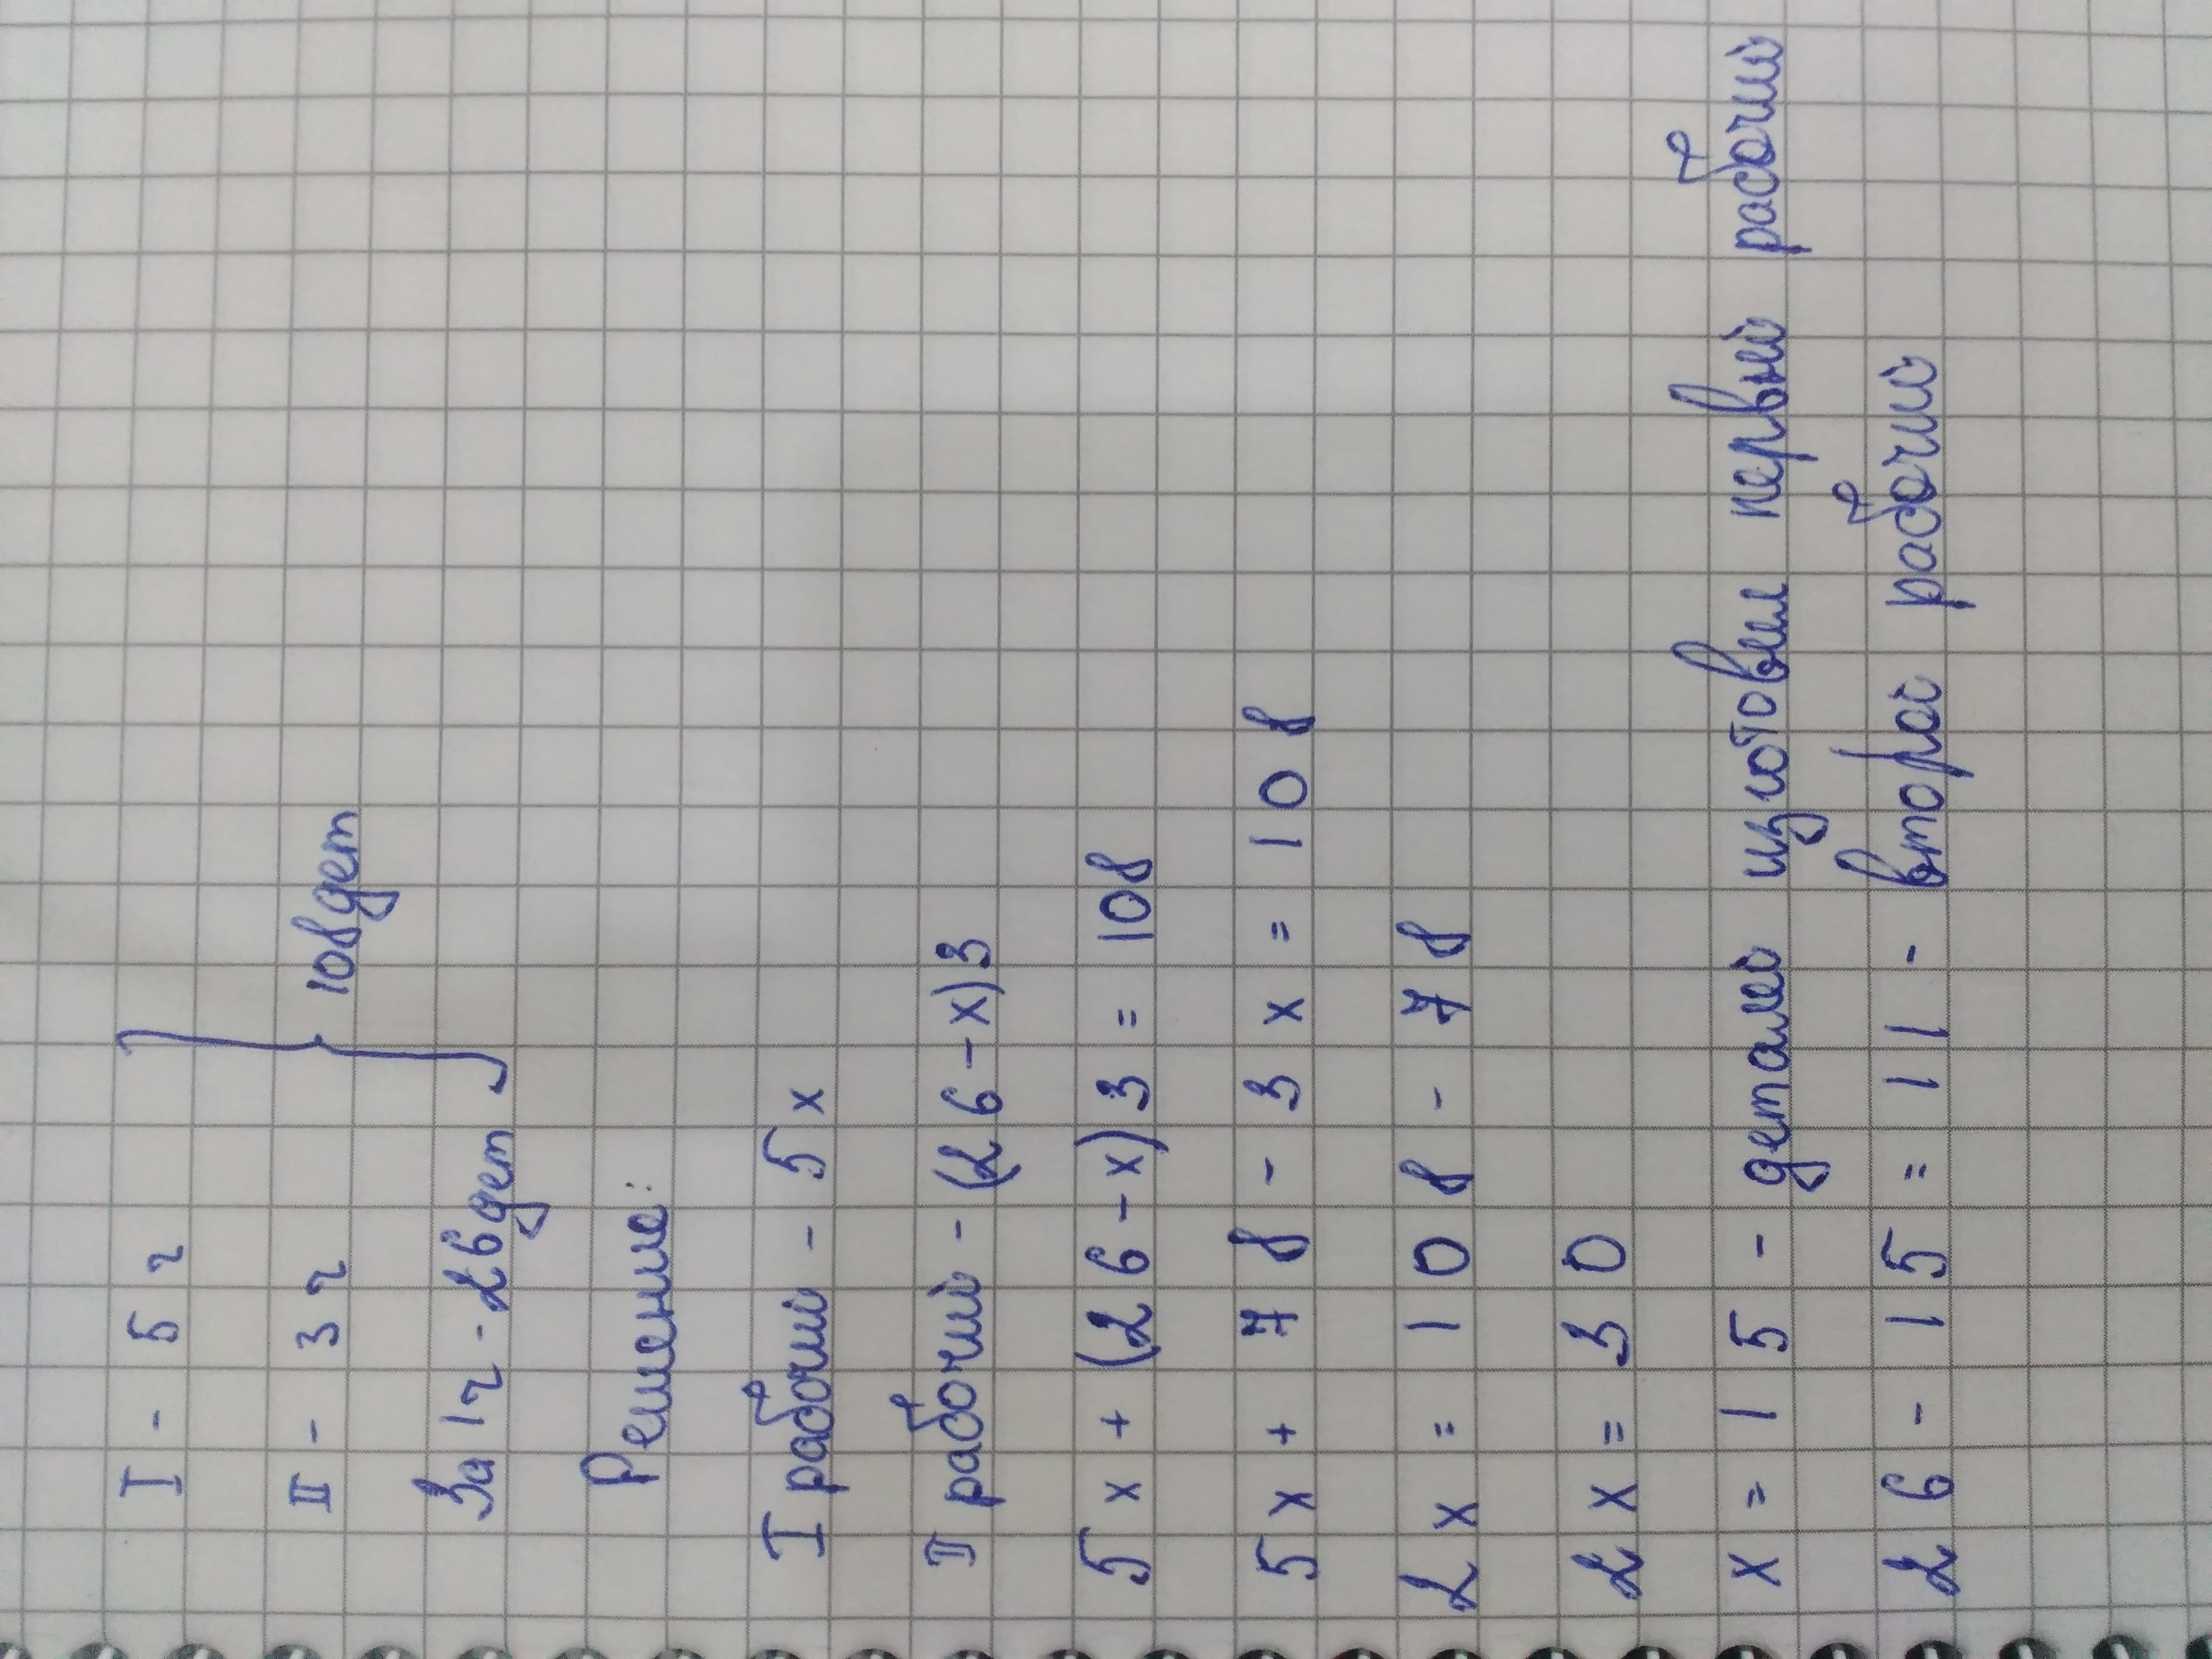 I - 5 ч
II - 3 ч
} 108 дет
За 1 ч - 26 дет
Решение:
I рабочий - 5x
II рабочий - (26-x)3
5x + (26-x)3 = 108
5x + 78 - 3x = 108
2x = 108 - 78
2x = 30
x = 15 - деталей изготовил первый рабочий
26 - 15 = 11 - второй рабочий